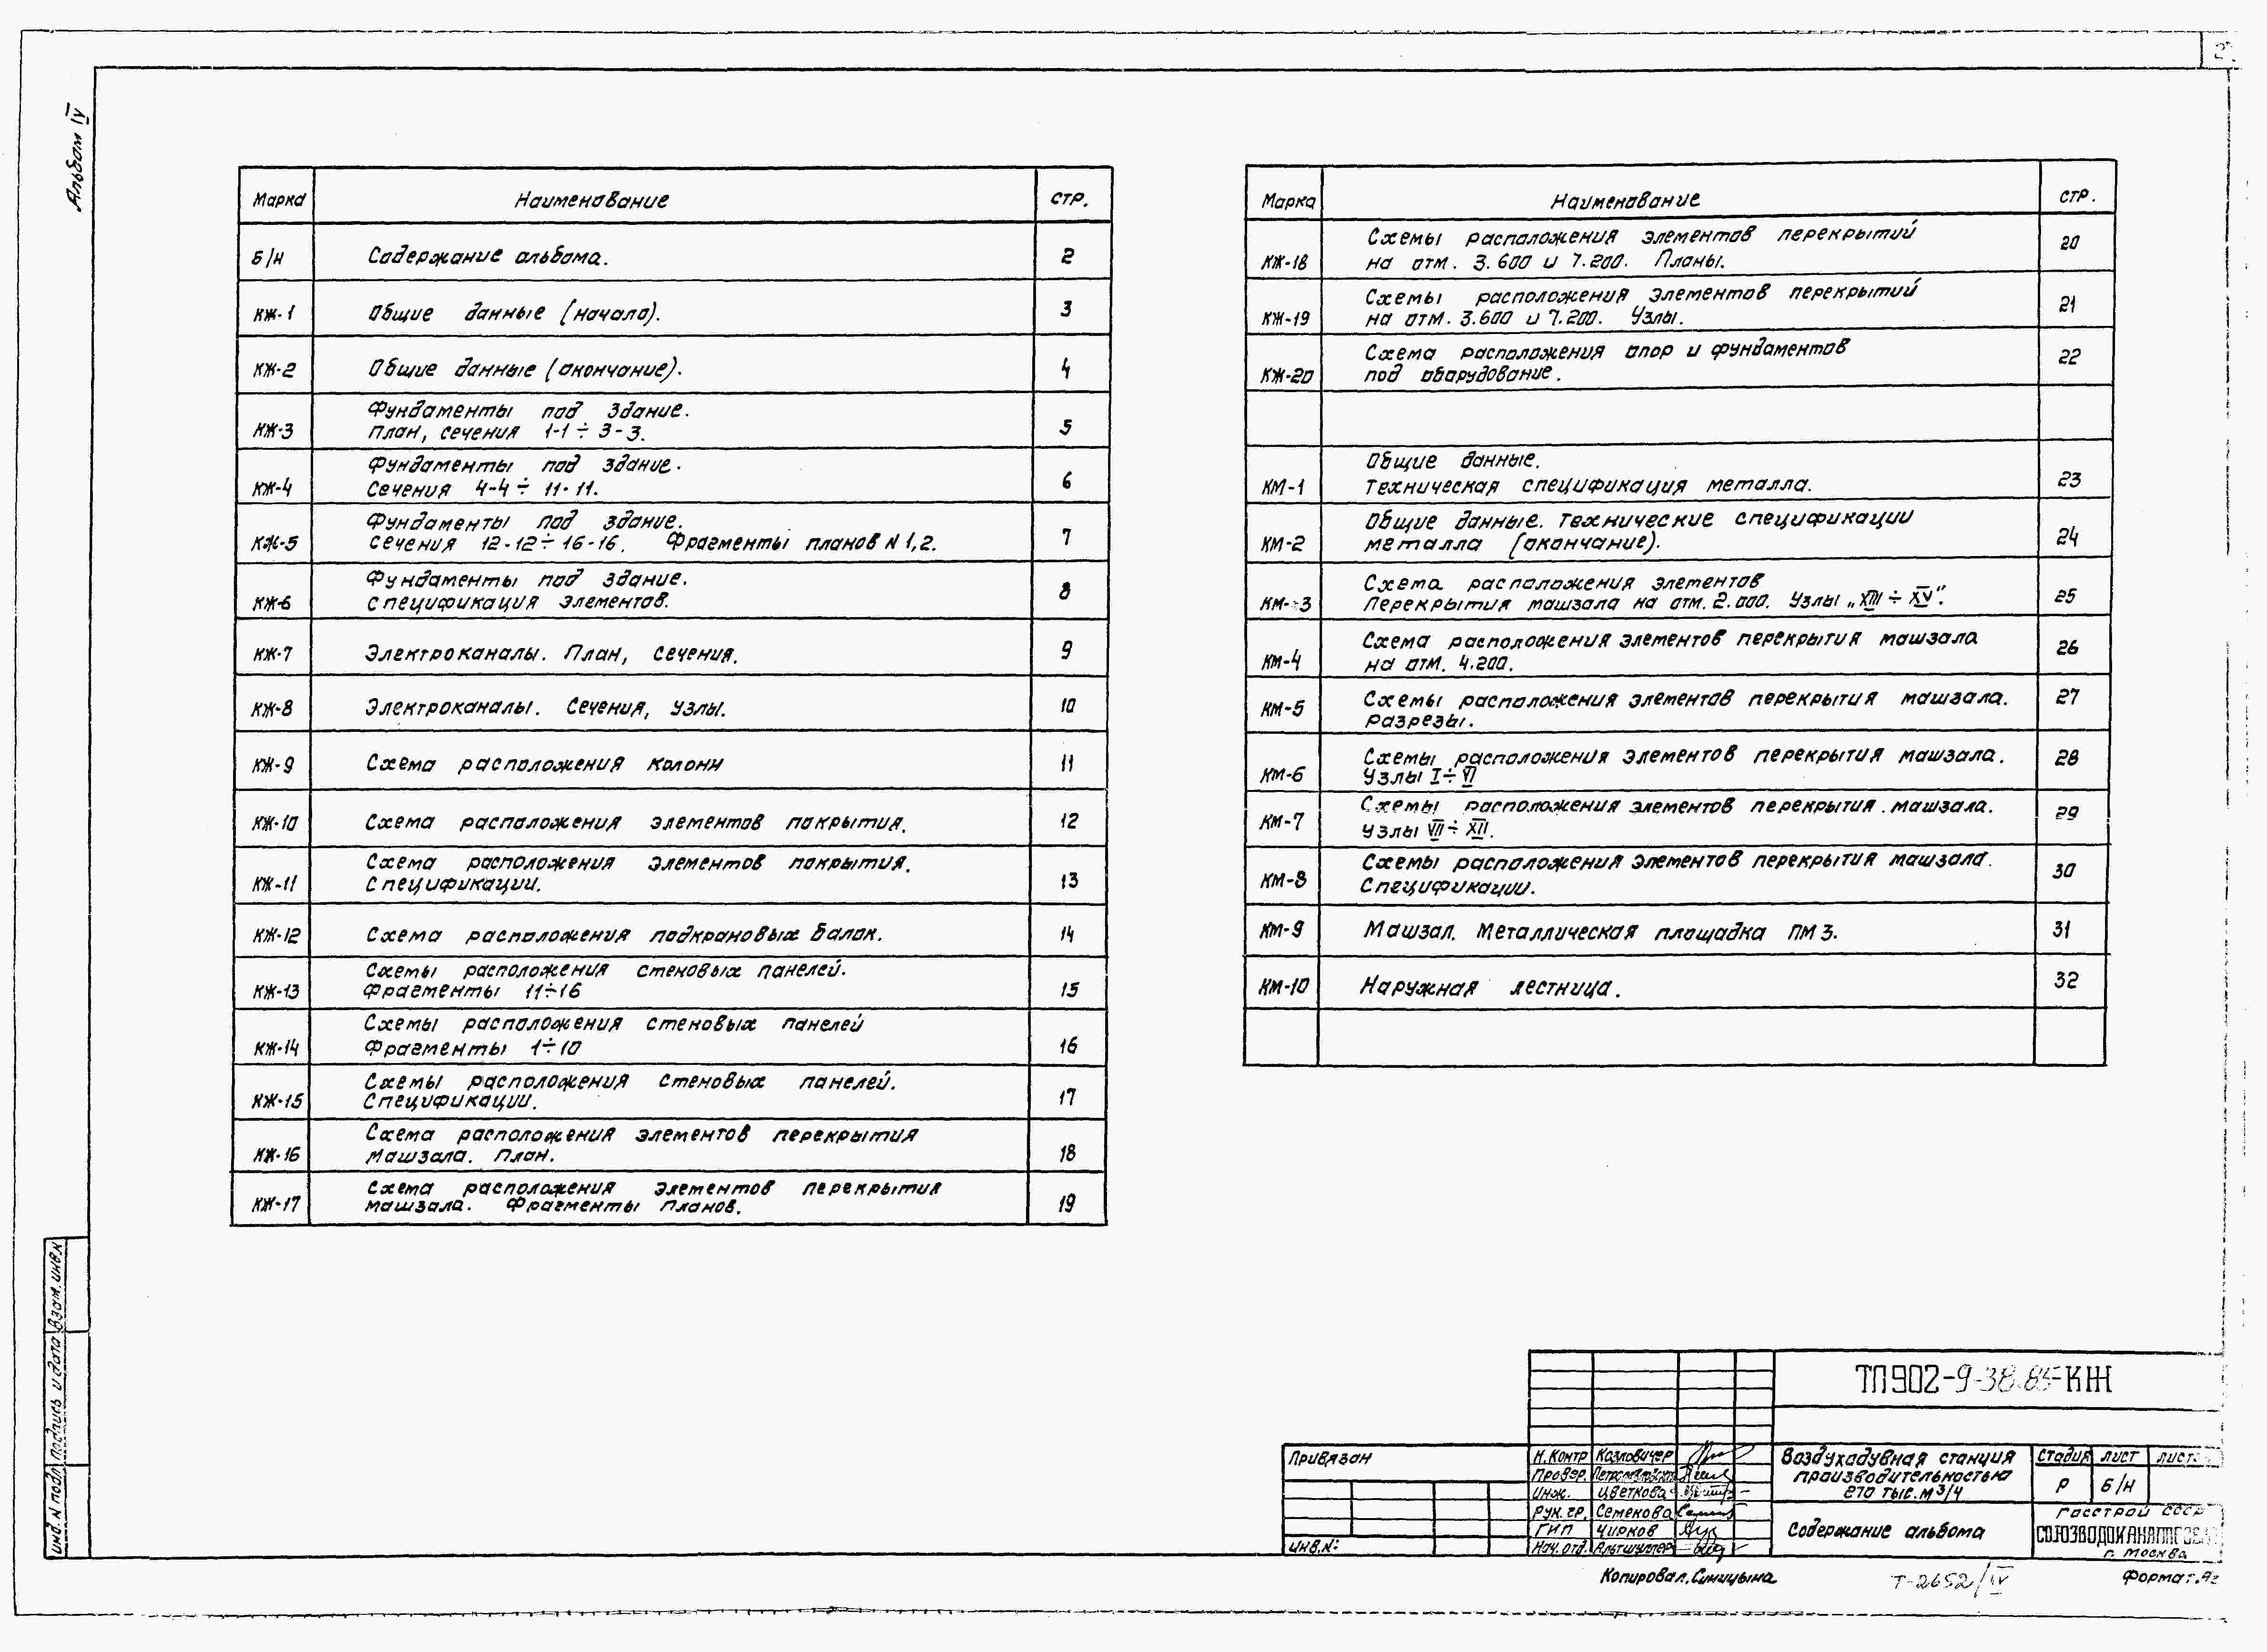 2
Альбом IV
Марка Наименование стр.
Б/н Содержание альбома. 2
КЖ-1 Общие данные (начало). 3
КЖ-2 Общие данные (окончание). 4
Фундаменты под здание.
КЖ-3 План, сечения 1-1÷3-3. 5
Фундаменты под здание.
КЖ-4 Сечения 4-4÷11-11. 6
Фундаменты под здание.
КЖ-5 Сечения 12-12÷16-16. Фрагменты планов N 1,2. 7
Фундаменты под здание.
КЖ-6 Спецификация элементов. 8
КЖ-7 Электроканалы. План, сечения. 9
КЖ-8 Электроканалы. Сечения, узлы. 10
КЖ-9 Схема расположения колонн 11
КЖ-10 Схема расположения элементов покрытия. 12
Схема расположения элементов покрытия.
КЖ-11 Спецификации. 13
КЖ-12 Схема расположения подкрановых балок. 14
Схемы расположения стеновых панелей.
КЖ-13 Фрагменты 11÷16 15
Схемы расположения стеновых панелей
КЖ-14 Фрагменты 1÷10 16
Схемы расположения стеновых панелей.
КЖ-15 Спецификации. 17
Схема расположения элементов перекрытия
КЖ-16 Машзала. План. 18
Схема расположения элементов перекрытия
КЖ-17 машзала. Фрагменты планов. 19
Марка Наименование стр.
Схемы расположения элементов перекрытий 20
КЖ-18 на отм. 3.600 и 7.200. Планы.
Схемы расположения элементов перекрытий 21
КЖ-19 на отм. 3.600 и 7.200. Узлы.
Схема расположения опор и фундаментов 22
КЖ-20 под оборудование.
Общие данные.
КМ-1 Техническая спецификация металла. 23
Общие данные. Технические спецификации
КМ-2 металла (окончание). 24
Схема расположения элементов
КМ-3 Перекрытия машзала на отм. 2.000. Узлы „XIII÷XV“. 25
Схема расположения элементов перекрытия машзала 26
КМ-4 на отм. 4.200.
Схемы расположения элементов перекрытия машзала. 27
КМ-5 разрезы.
Схемы расположения элементов перекрытия машзала. 28
КМ-6 Узлы I÷VI
Схемы расположения элементов перекрытия машзала. 29
КМ-7 Узлы VII÷XII.
Схемы расположения элементов перекрытия машзала. 30
КМ-8 Спецификации.
КМ-9 Машзал. Металлическая площадка ПМ 3. 31
КМ-10 Наружная лестница. 32
Взам. инв.N
Подпись и дата
Инв. N подл
ТП 902-9-38.85-КЖ
Привязан
Инв.N:
Н.контр Козловичер
Провер.
Инж. Цветкова
Рук. гр. Семенова
ГИП Чирков
Нач.отд. Альтшуллер
Воздуходувная станция
производительностью
270 тыс. м³/ч
Содержание альбома
Стадия лист листов
Р Б/Н
Госстрой СССР
СОЮЗВОДОКАНАЛПРОЕКТ
г. Москва
Копировал. Синицына
Т-2652/IV
Формат. А2